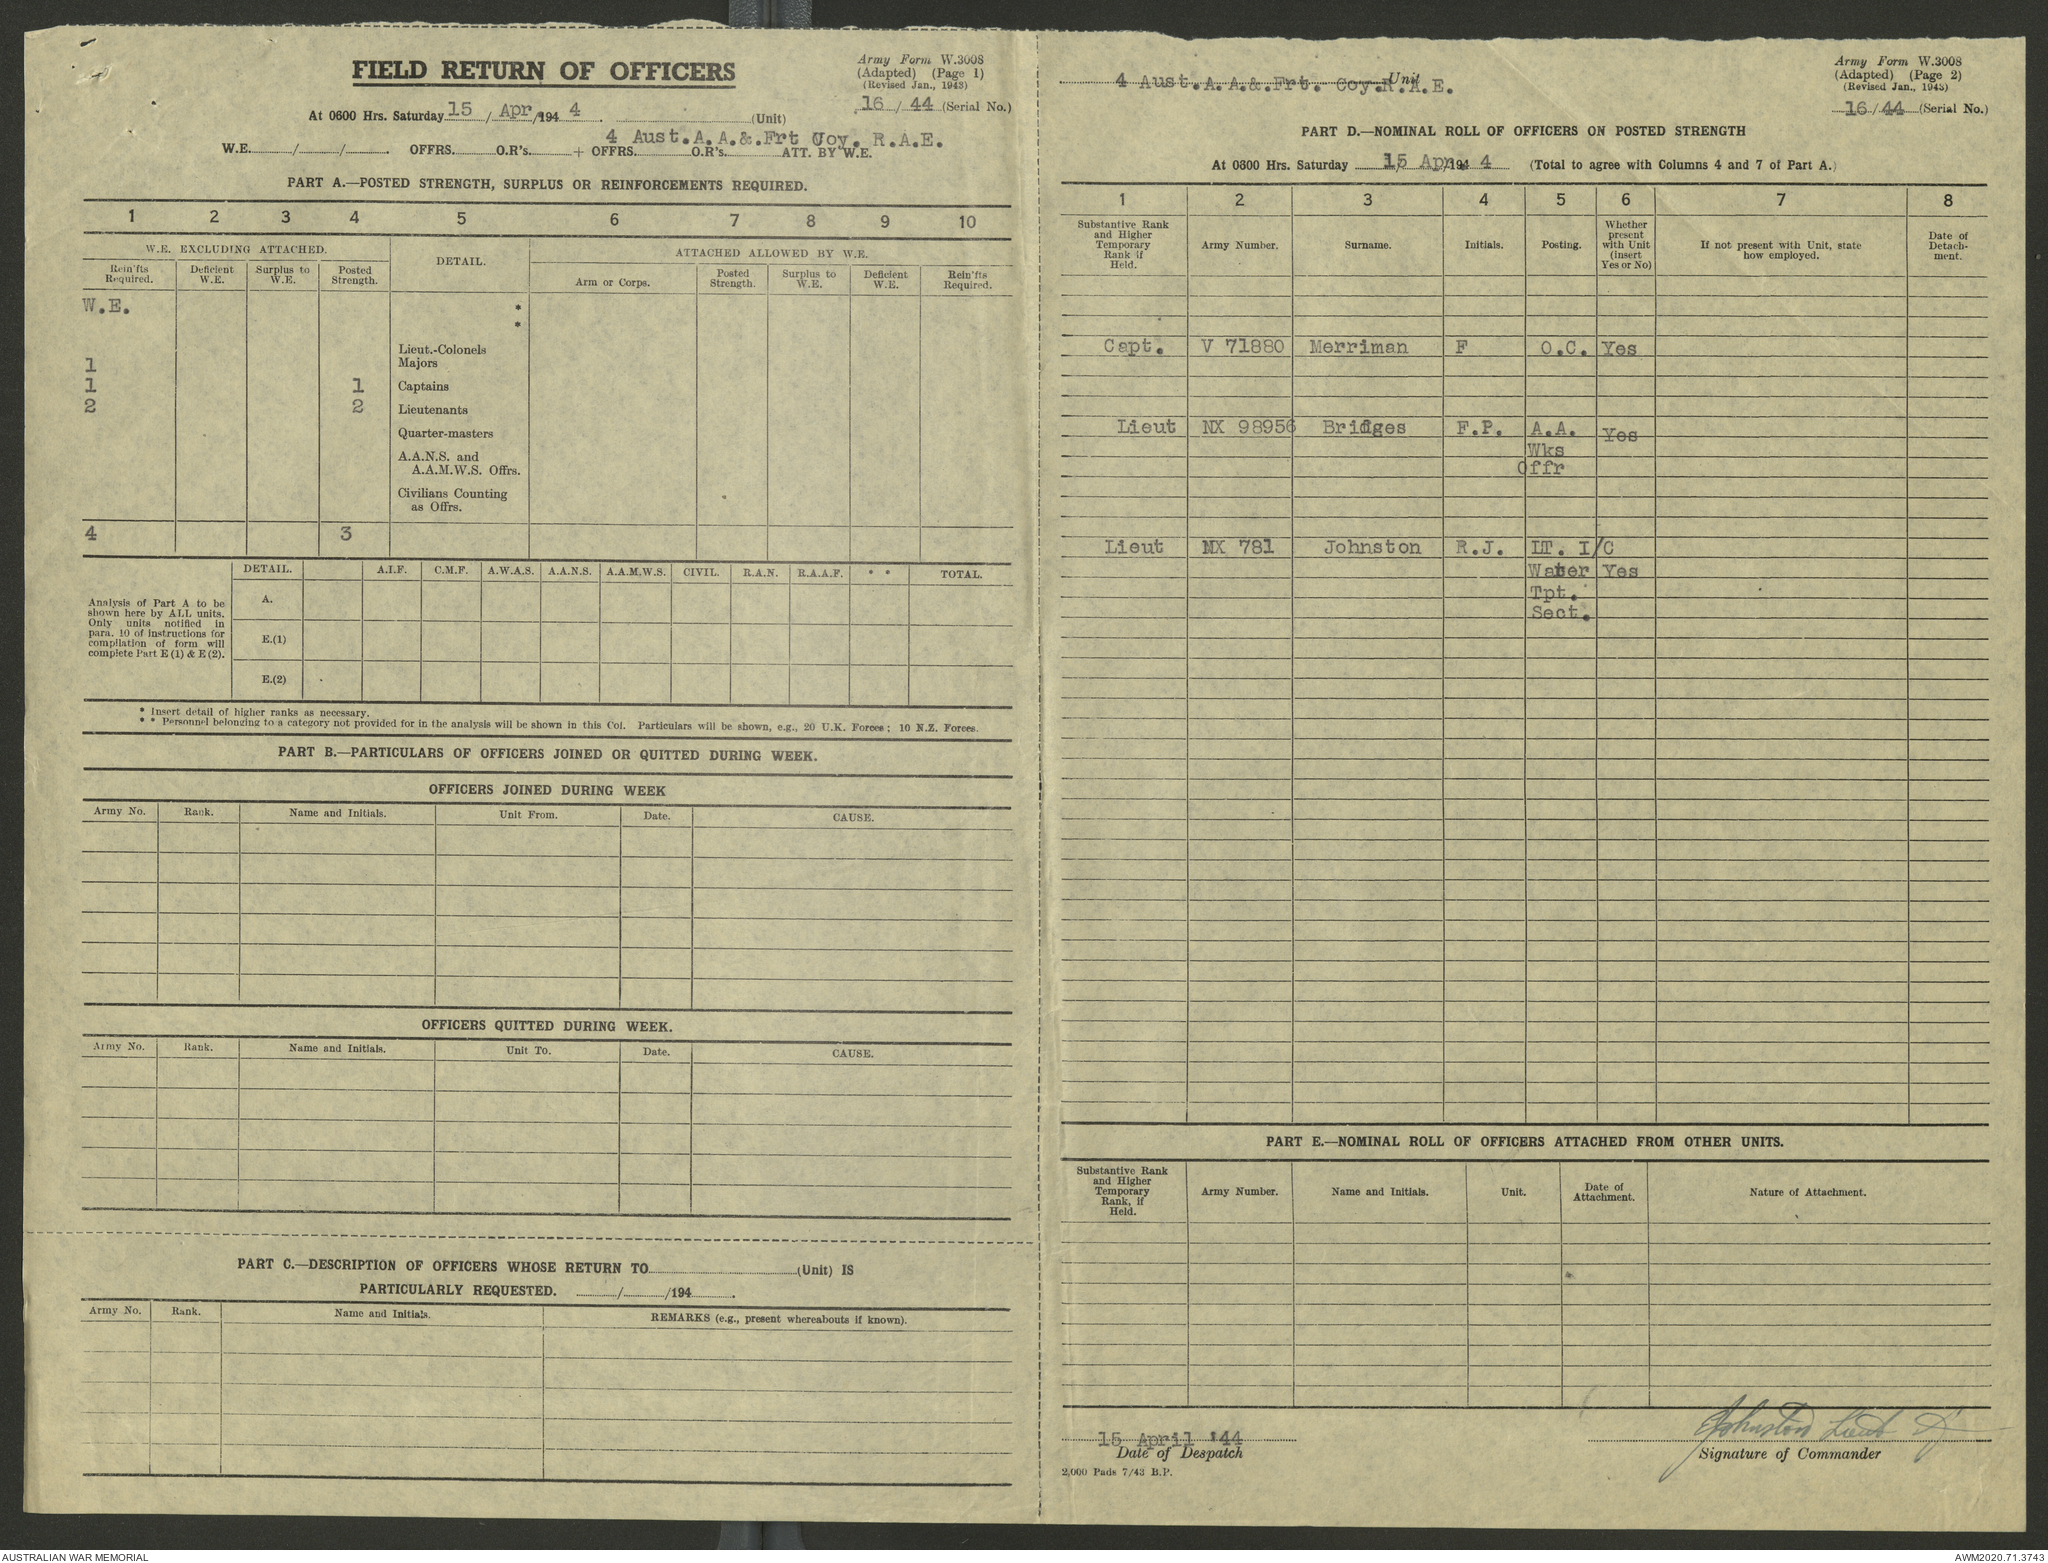 Army Form W.3008
(Adapted) (Page 1)
(Revised Jan., 1943)
FIELD RETURN OF OFFICERS
16 / 44 (Serial No.)
At 0600 Hrs. Saturday 15 / Apr /194 4. (Unit)
4 Aust.A.A.&.Frt Coy. R.A.E.
W.E. / / . OFFRS. O.R's. + OFFRS. O.R's. ATT. BY W.E.
PART A.—POSTED STRENGTH, SURPLUS OR REINFORCEMENTS REQUIRED.
1 2 3 4 5 6 7 8 9 10
W.E. EXCLUDING ATTACHED. DETAIL. ATTACHED ALLOWED BY W.E.
Rein'fts Required. Deficient W.E. Surplus to W.E. Posted Strength. Arm or Corps. Posted Strength. Surplus to W.E. Deficient W.E. Rein'fts Required.
W.E. *
*
Lieut.-Colonels
1 Majors
1 1 Captains
2 2 Lieutenants
Quarter-masters
A.A.N.S. and
A.A.M.W.S. Offrs.
Civilians Counting
as Offrs.
4 3
DETAIL. A.I.F. C.M.F. A.W.A.S. A.A.N.S. A.A.M.W.S. CIVIL. R.A.N. R.A.A.F. * * TOTAL.
Analysis of Part A to be
shown here by ALL units.
Only units notified in
para. 10 of instructions for
compilation of form will
complete Part E (1) & E (2).
A.
E.(1)
E.(2)
* Insert detail of higher ranks as necessary.
* * Personnel belonging to a category not provided for in the analysis will be shown in this Col. Particulars will be shown, e.g., 20 U.K. Forces; 10 N.Z. Forces.
PART B.—PARTICULARS OF OFFICERS JOINED OR QUITTED DURING WEEK.
OFFICERS JOINED DURING WEEK
Army No. Rank. Name and Initials. Unit From. Date. CAUSE.
OFFICERS QUITTED DURING WEEK.
Army No. Rank. Name and Initials. Unit To. Date. CAUSE.
PART C.—DESCRIPTION OF OFFICERS WHOSE RETURN TO (Unit) IS
PARTICULARLY REQUESTED. / /194 .
Army No. Rank. Name and Initials. REMARKS (e.g., present whereabouts if known).
Army Form W.3008
(Adapted) (Page 2)
(Revised Jan., 1943)
4 Aust.A.A.&.Frt. Coy.R.A.E. Unit
16 / 44 (Serial No.)
PART D.—NOMINAL ROLL OF OFFICERS ON POSTED STRENGTH
At 0600 Hrs. Saturday 15 Apr /194 4 (Total to agree with Columns 4 and 7 of Part A.)
1 2 3 4 5 6 7 8
Substantive Rank and Higher Temporary Rank if Held. Army Number. Surname. Initials. Posting. Whether present with Unit (Insert Yes or No) If not present with Unit, state how employed. Date of Detach-ment.
Capt. V 71880 Merriman F O.C. Yes
Lieut NX 98956 Bridges F.P. A.A. Yes
Wks
Offr
Lieut MX 781 Johnston R.J. LT. I/C
Water Yes
Tpt.
Sect.
PART E.—NOMINAL ROLL OF OFFICERS ATTACHED FROM OTHER UNITS.
Substantive Rank and Higher Temporary Rank, if Held. Army Number. Name and Initials. Unit. Date of Attachment. Nature of Attachment.
15 April '44
Johnston Lieut
Date of Despatch
Signature of Commander
2,000 Pads 7/43 B.P.
AUSTRALIAN WAR MEMORIAL
AWM2020.71.3743